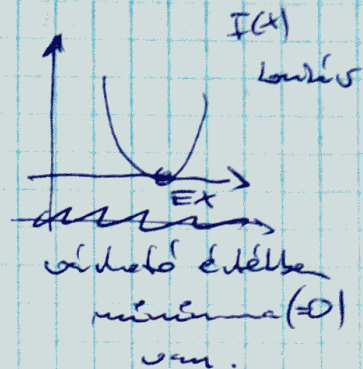 I(x)
konvex
EX
várható értékben
minimuma (=0)
van.